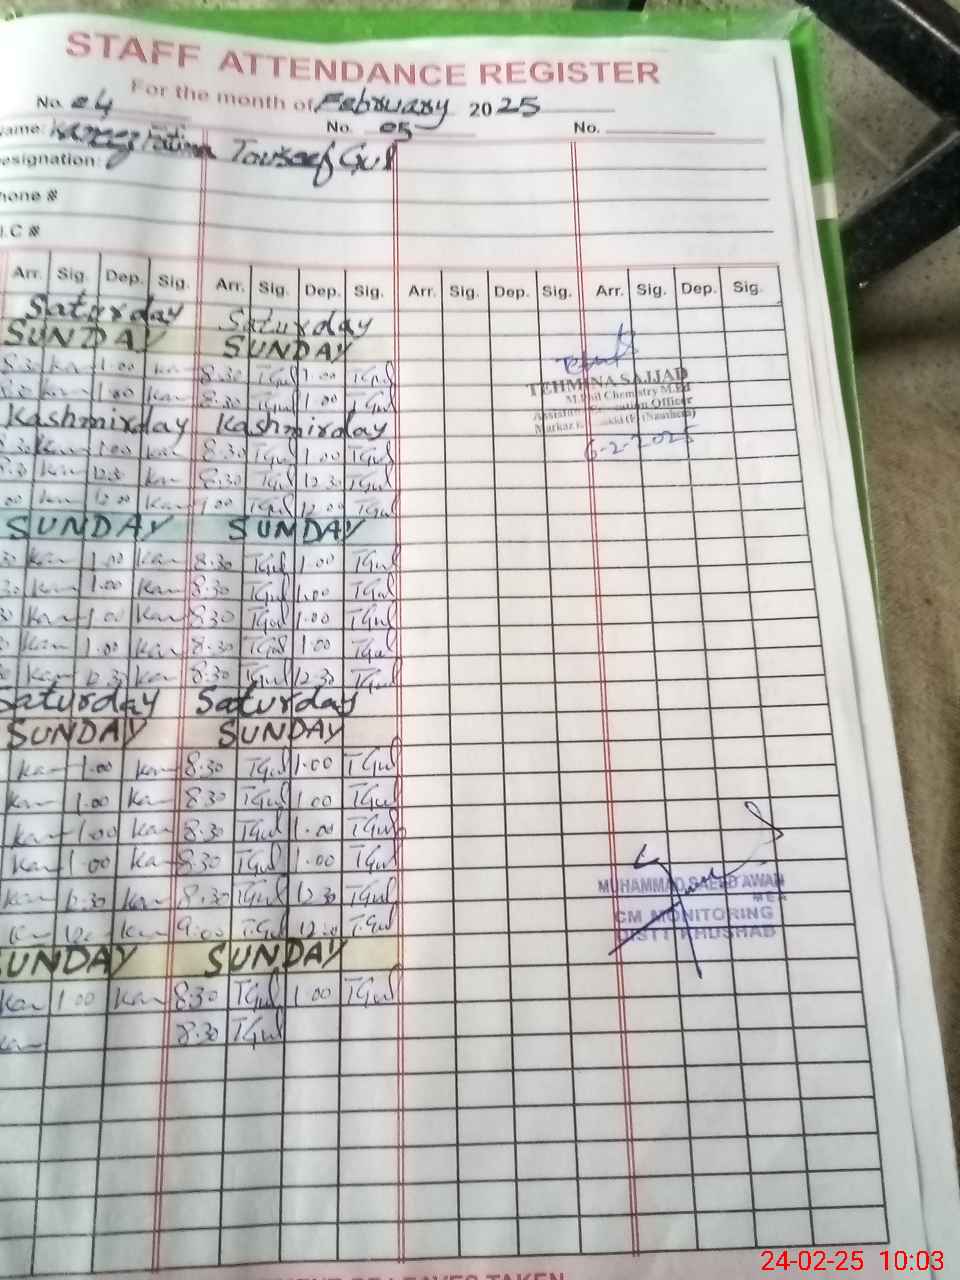 STAFF ATTENDANCE REGISTER
For the month of February 2025
No. 04 No. 05 No.
Name: Fatima Touseef Gul
Designation:
Phone #
I.C #
Arr. Sig. Dep. Sig. Arr. Sig. Dep. Sig. Arr. Sig. Dep. Sig. Arr. Sig. Dep. Sig.
Saturday Saturday
SUNDAY SUNDAY
8.30 Kan 1.00 Kan 8.30 TGul 1.00 TGul
8.30 Kan 1.00 Kan 8.30 TGul 1.00 TGul
Kashmirday Kashmirday
8.30 Kan 1.00 Kan 8.30 TGul 1.00 TGul
8.30 Kan 12.30 Kan 8.30 TGul 12.30 TGul
00 Kan 12.00 Kan 1.00 TGul 12.00 TGul
SUNDAY SUNDAY
30 Kan 1.00 Kan 8.30 TGul 1.00 TGul
30 Kan 1.00 Kan 8.30 TGul 1.00 TGul
30 Kan 1.00 Kan 8.30 TGul 1.00 TGul
30 Kan 1.00 Kan 8.30 TGul 1.00 TGul
Kan 12.30 Kan 8.30 TGul 12.30 TGul
Saturday Saturday
SUNDAY SUNDAY
Kan 1.00 Kan 8.30 TGul 1.00 TGul
Kan 1.00 Kan 8.30 TGul 1.00 TGul
Kan 1.00 Kan 8.30 TGul 1.00 TGul
Kan 1.00 Kan 8.30 TGul 1.00 TGul
Kan 12.30 Kan 8.30 TGul 12.30 TGul
Kan Kan 9.00 TGul 12.00 TGul
SUNDAY SUNDAY
Kan 1.00 Kan 8.30 TGul 1.00 TGul
Kan 8.30 TGul
TEHMINA SAJJAD
M.Phil Chemistry M.Ed
Assistant Education Officer
Markaz
6-2-2025
MUHAMMAD SAEED AWAN
MEA
CM MONITORING
DISTT KHUSHAB
LEAVES TAKEN
24-02-25 10:03